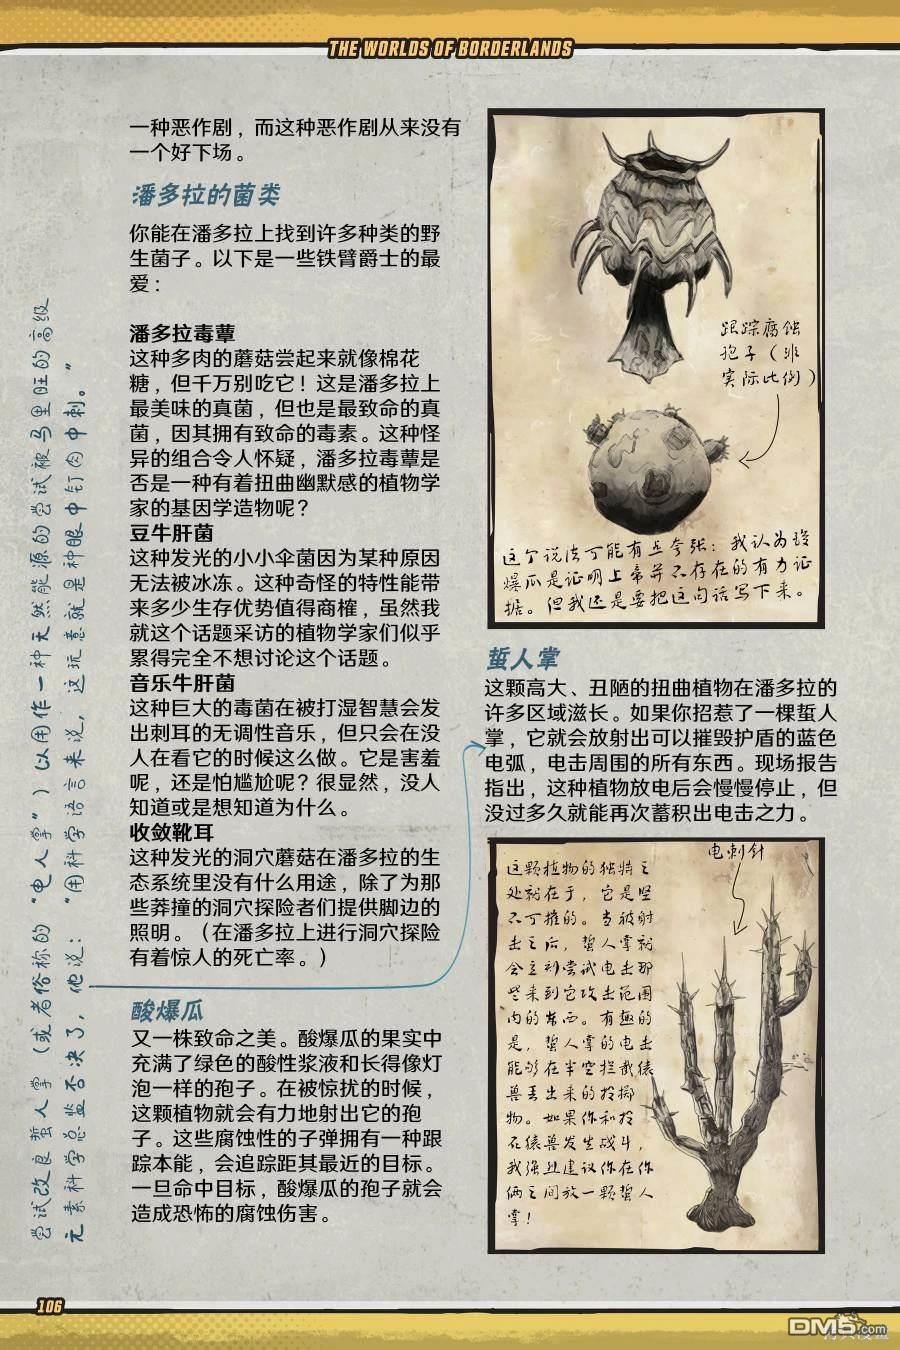 THE WORLDS OF BORDERLANDS
一种恶作剧，而这种恶作剧从来没有
一个好下场。
潘多拉的菌类
你能在潘多拉上找到许多种类的野
生菌子。以下是一些铁臂爵士的最
爱：
潘多拉毒蕈
这种多肉的蘑菇尝起来就像棉花
糖，但千万别吃它！这是潘多拉上
最美味的真菌，但也是最致命的真
菌，因其拥有致命的毒素。这种怪
异的组合令人怀疑，潘多拉毒蕈是
否是一种有着扭曲幽默感的植物学
家的基因学造物呢？
豆牛肝菌
这种发光的小小伞菌因为某种原因
无法被冰冻。这种奇怪的特性能带
来多少生存优势值得商榷，虽然我
就这个话题采访的植物学家们似乎
累得完全不想讨论这个话题。
音乐牛肝菌
这种巨大的毒菌在被打湿智慧会发
出刺耳的无调性音乐，但只会在没
人在看它的时候这么做。它是害羞
呢，还是怕尴尬呢？很显然，没人
知道或是想知道为什么。
收敛靴耳
这种发光的洞穴蘑菇在潘多拉的生
态系统里没有什么用途，除了为那
些莽撞的洞穴探险者们提供脚边的
照明。（在潘多拉上进行洞穴探险
有着惊人的死亡率。）
酸爆瓜
又一株致命之美。酸爆瓜的果实中
充满了绿色的酸性浆液和长得像灯
泡一样的孢子。在被惊扰的时候，
这颗植物就会有力地射出它的孢
子。这些腐蚀性的子弹拥有一种跟
踪本能，会追踪距其最近的目标。
一旦命中目标，酸爆瓜的孢子就会
造成恐怖的腐蚀伤害。
尝试改良蜇人掌（或者俗称的“电人掌”）以用作一种天然能源的尝试被马里旺的高级
元素科学总监否决了，他说：“用科学语言来说，这玩意就是种眼中钉肉中刺。”
跟踪腐蚀
孢子（非
实际比例）
这个说法可能有点夸张：我认为酸
爆瓜是证明上帝并不存在的有力证
据。但我还是要把这句话写下来。
蜇人掌
这颗高大、丑陋的扭曲植物在潘多拉的
许多区域滋长。如果你招惹了一棵蜇人
掌，它就会放射出可以摧毁护盾的蓝色
电弧，电击周围的所有东西。现场报告
指出，这种植物放电后会慢慢停止，但
没过多久就能再次蓄积出电击之力。
电刺针
这颗植物的独特之
处就在于，它是坚
不可摧的。当被射
击之后，蜇人掌就
会立刻尝试电击那
些来到它攻击范围
内的东西。有趣的
是，蜇人掌的电击
能够在半空拦截猿
兽丢出来的投掷
物。如果你和投
石猿兽发生战斗，
我强烈建议你在你
俩之间放一颗蜇人
掌！
106
DM5.com